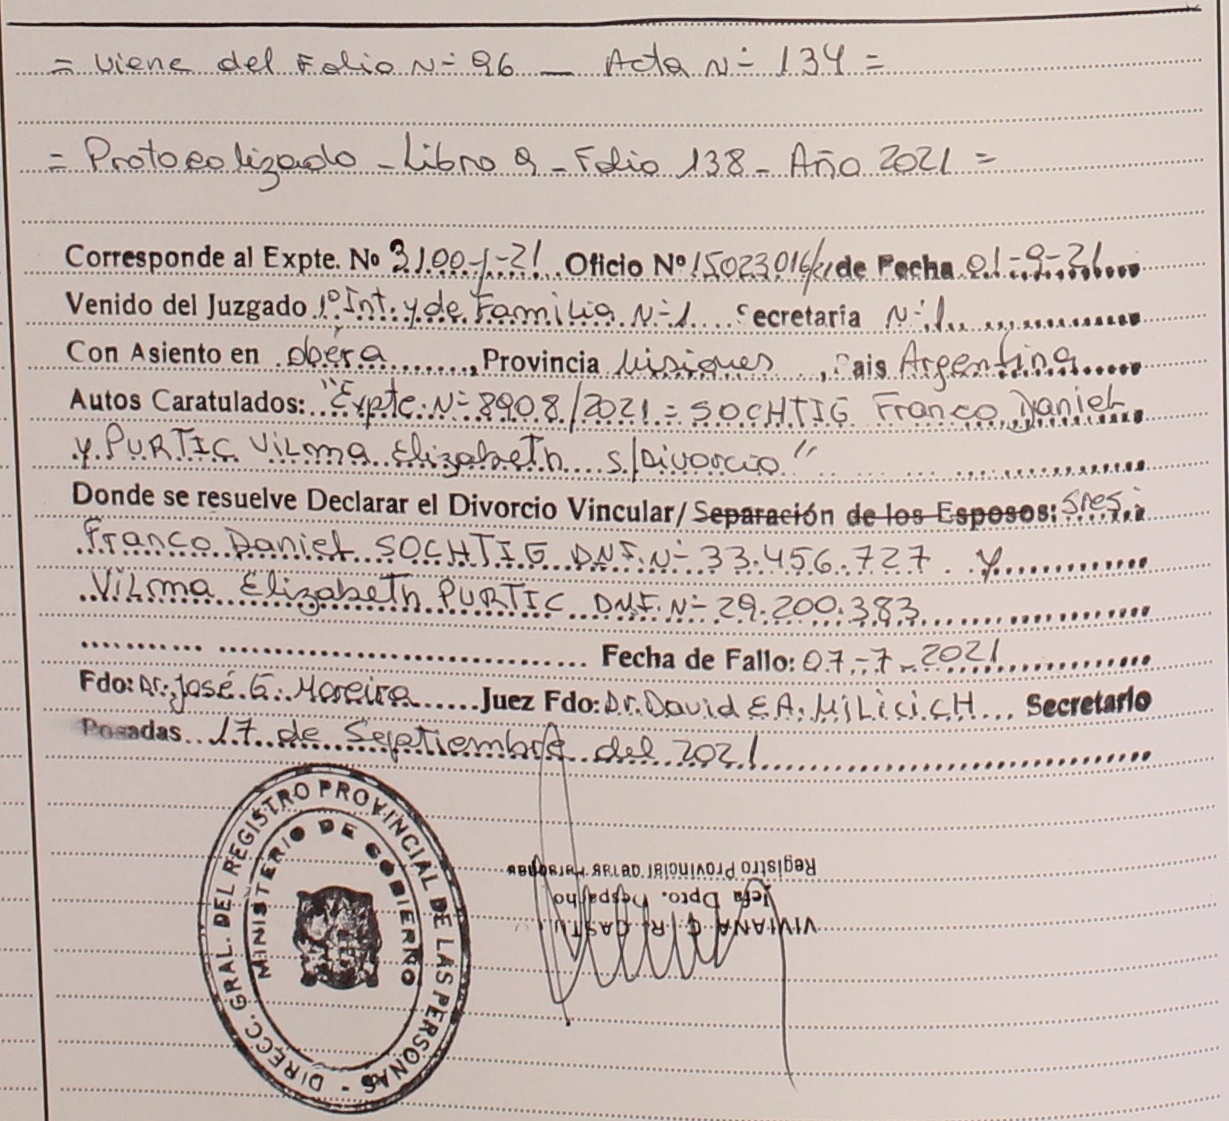 = Viene del Folio Nº 96 — Acta Nº 134 =
= Protocolizado - Libro 9 - Folio 138 - Año 2021 =
Corresponde al Expte. Nº 3100-J-21 Oficio Nº 15023016/21 de Fecha 01-9-21
Venido del Juzgado 1º Int. y de Familia Nº 1 Secretaría Nº 1
Con Asiento en Oberá, Provincia Misiones, Pais Argentina
Autos Caratulados: "Expte. Nº 8908/2021 = SOCHTIG Franco Daniel
y PURTIC Vilma Elizabeth s/Divorcio"
Donde se resuelve Declarar el Divorcio Vincular/Separación de los Esposos: Sres.:
Franco Daniel SOCHTIG DNI. Nº 33.456.727. y
Vilma Elizabeth PURTIC DNI. Nº 29.200.383
Fecha de Fallo: 07-7-2021
Fdo: Dr. José G. Moreira Juez Fdo: Dr. David E.A. MiLiciCH Secretario
Posadas 17 de Septiembre del 2021
DIRECC. GRAL. DEL REGISTRO PROVINCIAL DE LAS PERSONAS -
MINISTERIO DE GOBIERNO
VIVIANA C. R.
Jefa Dpto. Despacho
Registro Provincial de las Personas